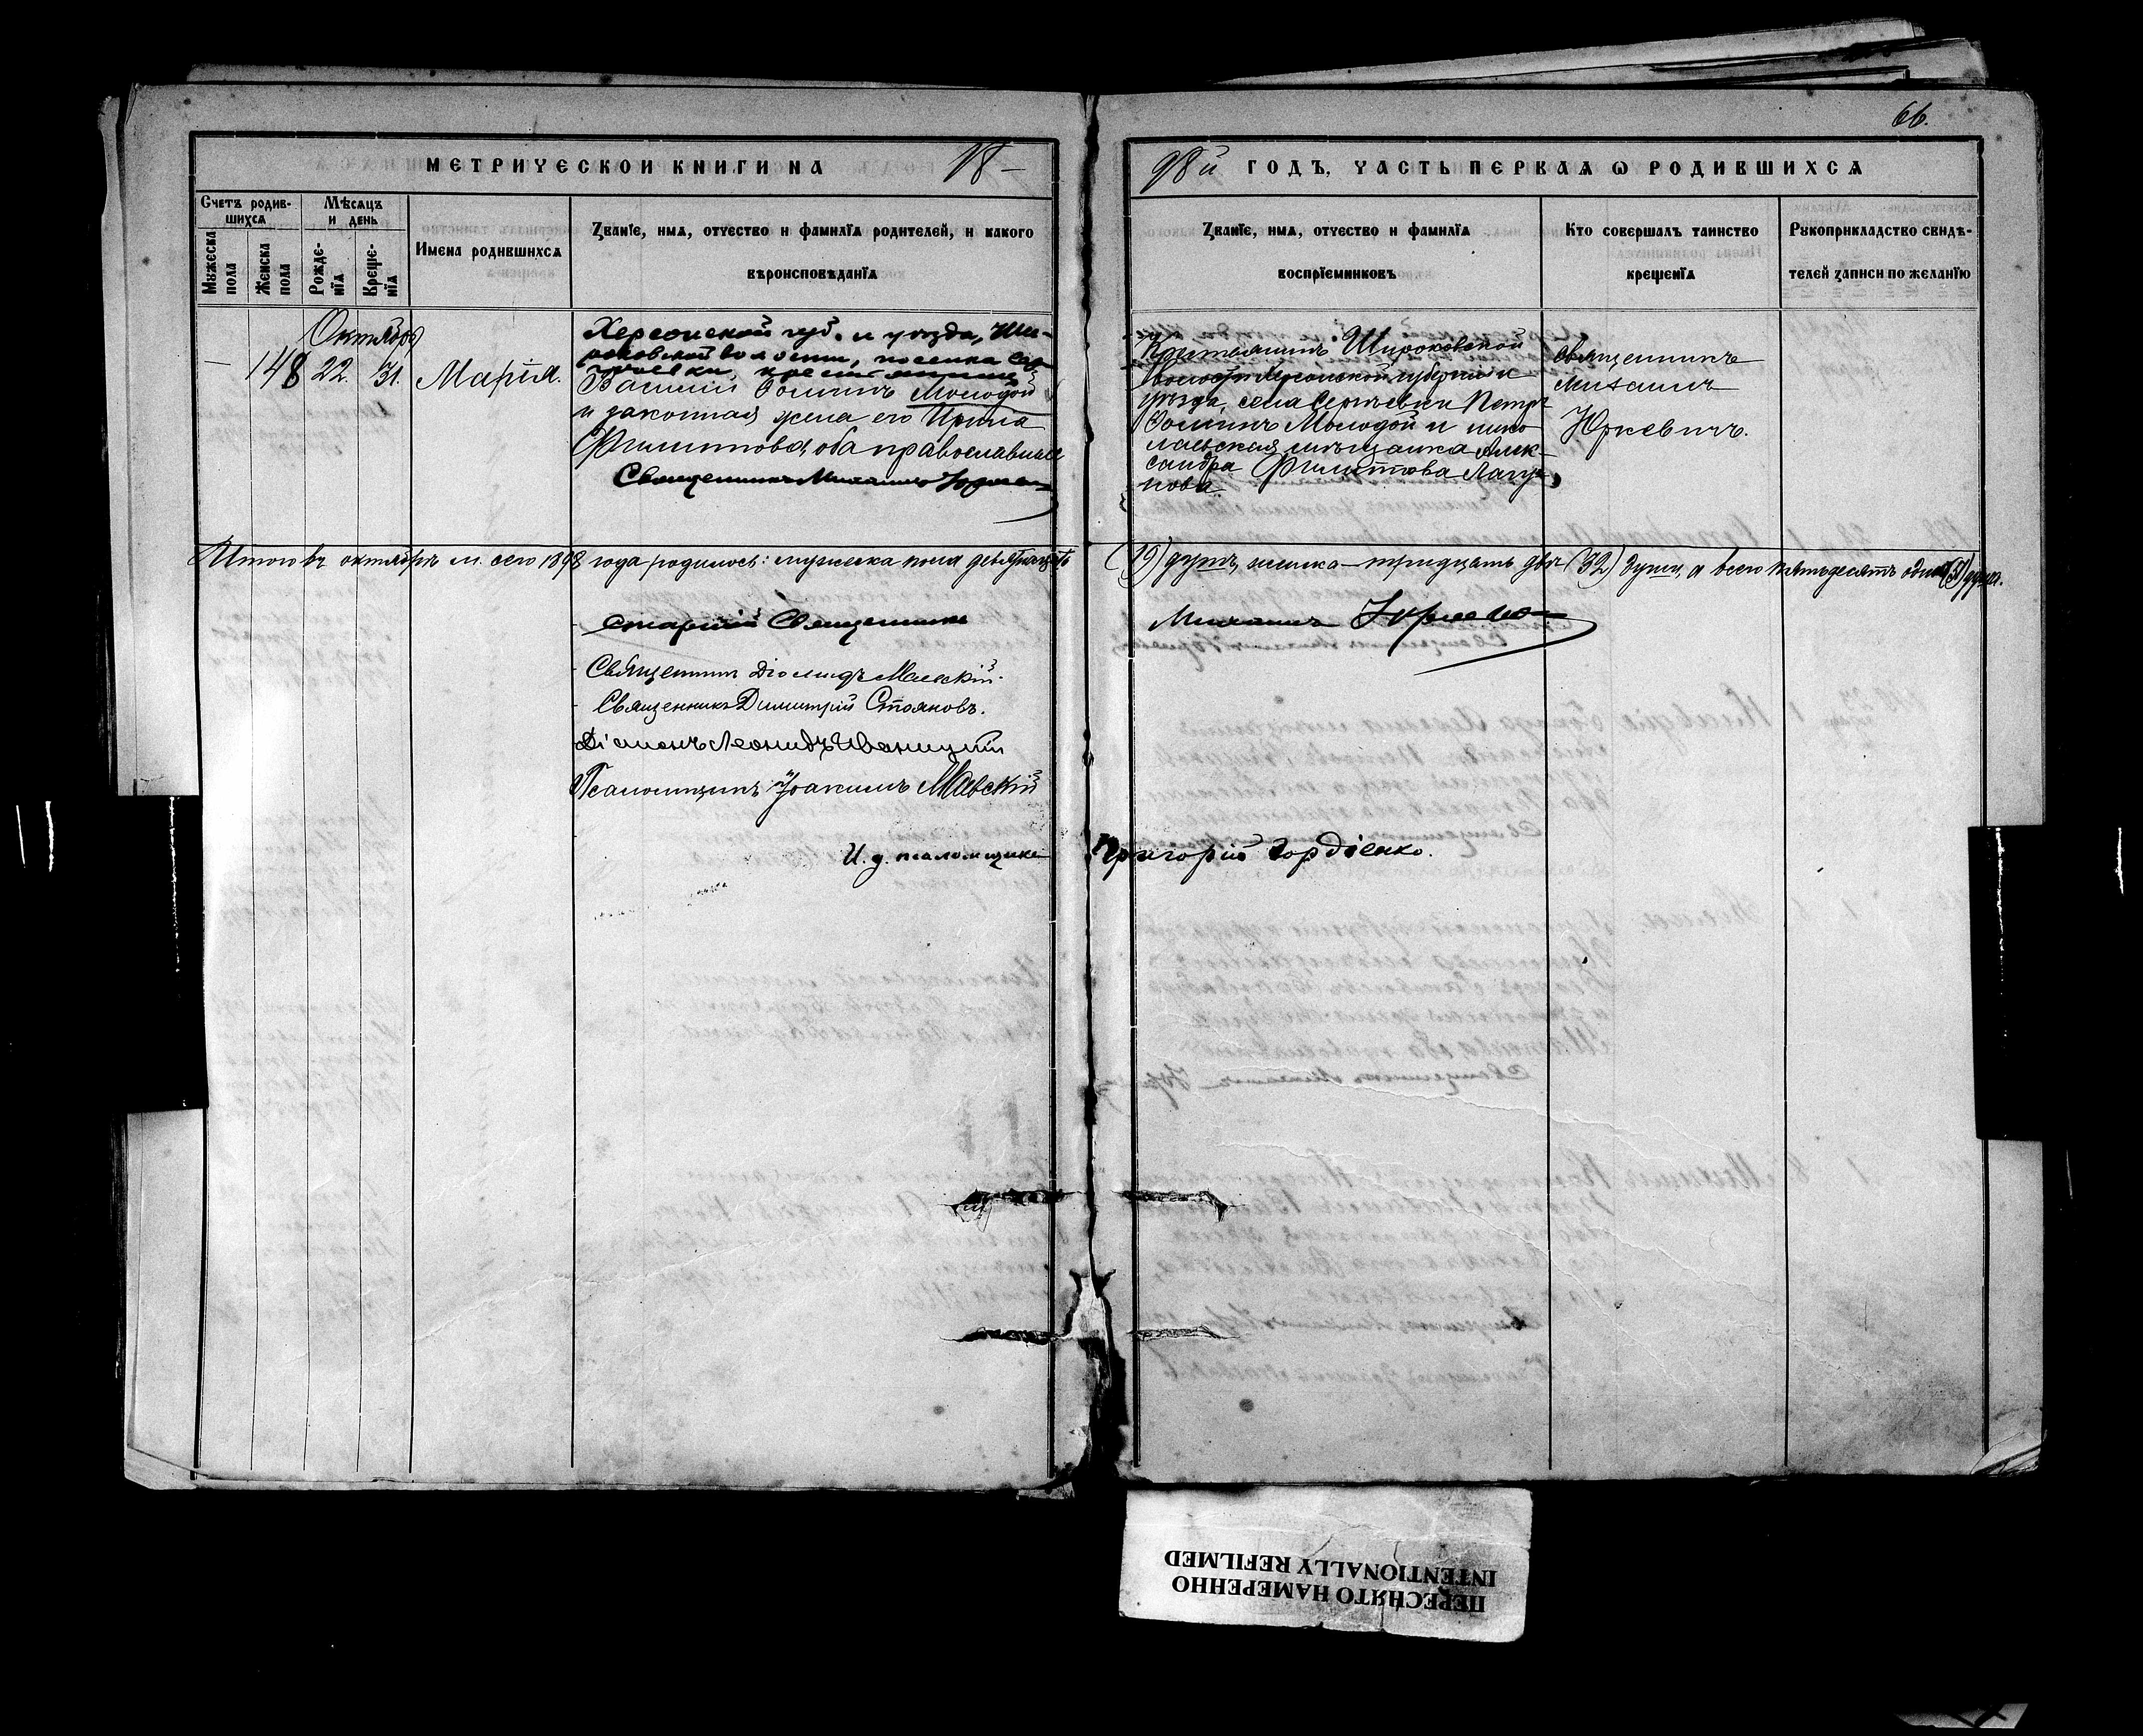 66.
МЕТРИЧЕСКОИ КНИГИ НА 18—
98й ГОДЪ, ЧАСТЬ ПЕРВАЯ Ѡ РОДИВШИХСЯ
Счетъ родив-
шихся
Мѣсяцъ
и день
Мужеска
пола
Женска
пола
Рожде-
нїя
Креще-
нїя
Имена родившихся
Званїе, имя, отчество и фамилїя родителей, и какого
вѣроисповѣданїя
Званїе, имя, отчество и фамилїя
воспрїемниковъ
Кто совершалъ таинство
крещенїя
Рукоприкладство свидѣ-
телей записи по желанїю
Октября
— 148 22. 31. Марія.
Херсонской губ. и уѣзда, Ши-
роковской волости, поселка Сер-
гѣевки, крестьянинъ
Ѳоминъ Молодой
и законная жена его Ирина
Филиппова, оба православные
Священникъ Михаилъ Юркевичъ
Крестьянинъ Широковской
волости Херсонской губерніи и
уѣзда, села Сергѣевки Петръ
Ѳоминъ Молодой и нико-
лаевская мѣщанка Алек-
сандра Филиппова Лагу-
нова.
Священникъ
Михаилъ
Юркевичъ.
Итого въ октябрѣ м. сего 1898 года родилось: мужеска пола девятнадцать (19) душъ, женска — тридцать двѣ (32) души, а всего пятьдесятъ одна (51) душа.
Старшій Священникъ Михаилъ Юркевичъ
Священникъ Діомидъ Маевскій.
Священникъ Димитрій Стояновъ.
Діаконъ Леонидъ Иваницкій
Псаломщикъ Іоакимъ Маевскій
И. д. псаломщика Григорій Гордіенко.
ПЕРЕСНЯТО НАМЕРЕННО
INTENTIONALLY REFILMED